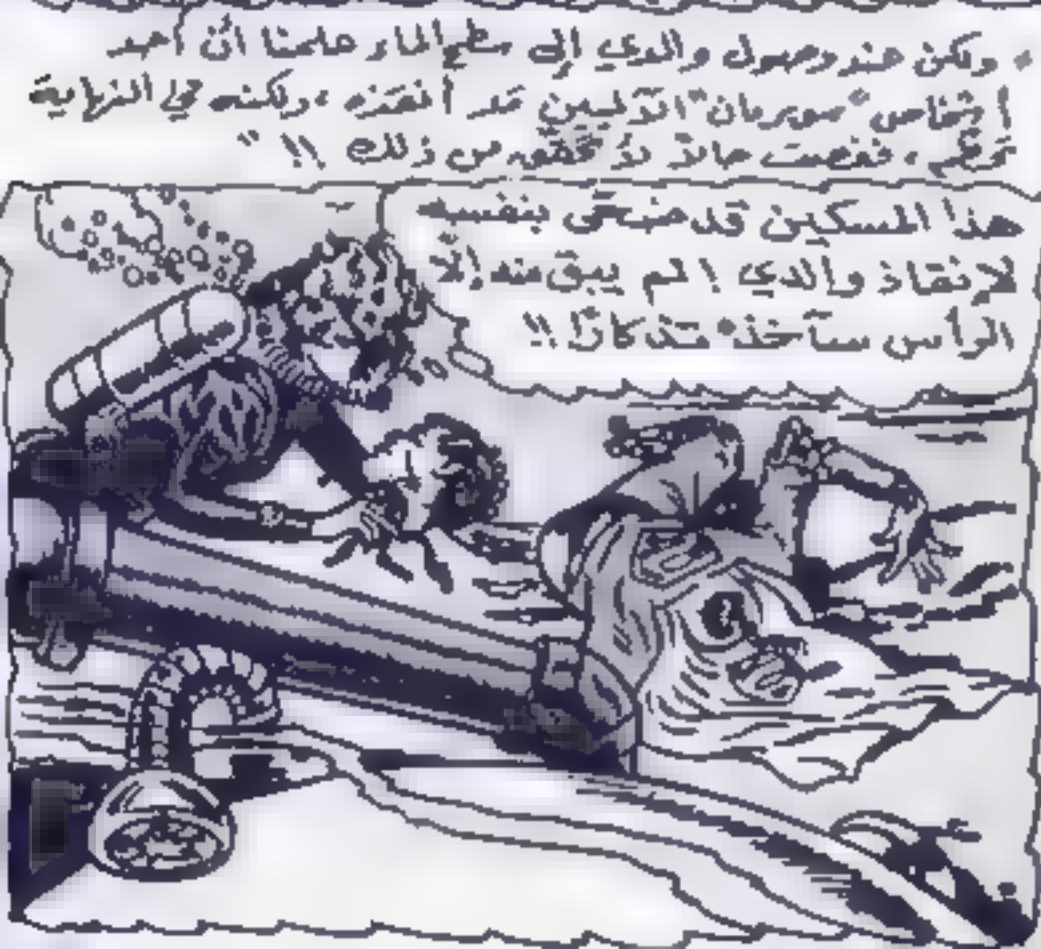 ، ولكن عند وصول والدي إلى سطح الماء علمنا أنّ أحد
أشخاص "سوبرمان" الآليين قد أنقذه ، ولكنه في النهاية
تحطم ، فغصت حالاً لأتحقق من ذلك !! "
هذا المسكين قد ضحّى بنفسه
لإنقاذ والدي ! لم يبق منه إلّا
الرأس سآخذه تذكارًا !!